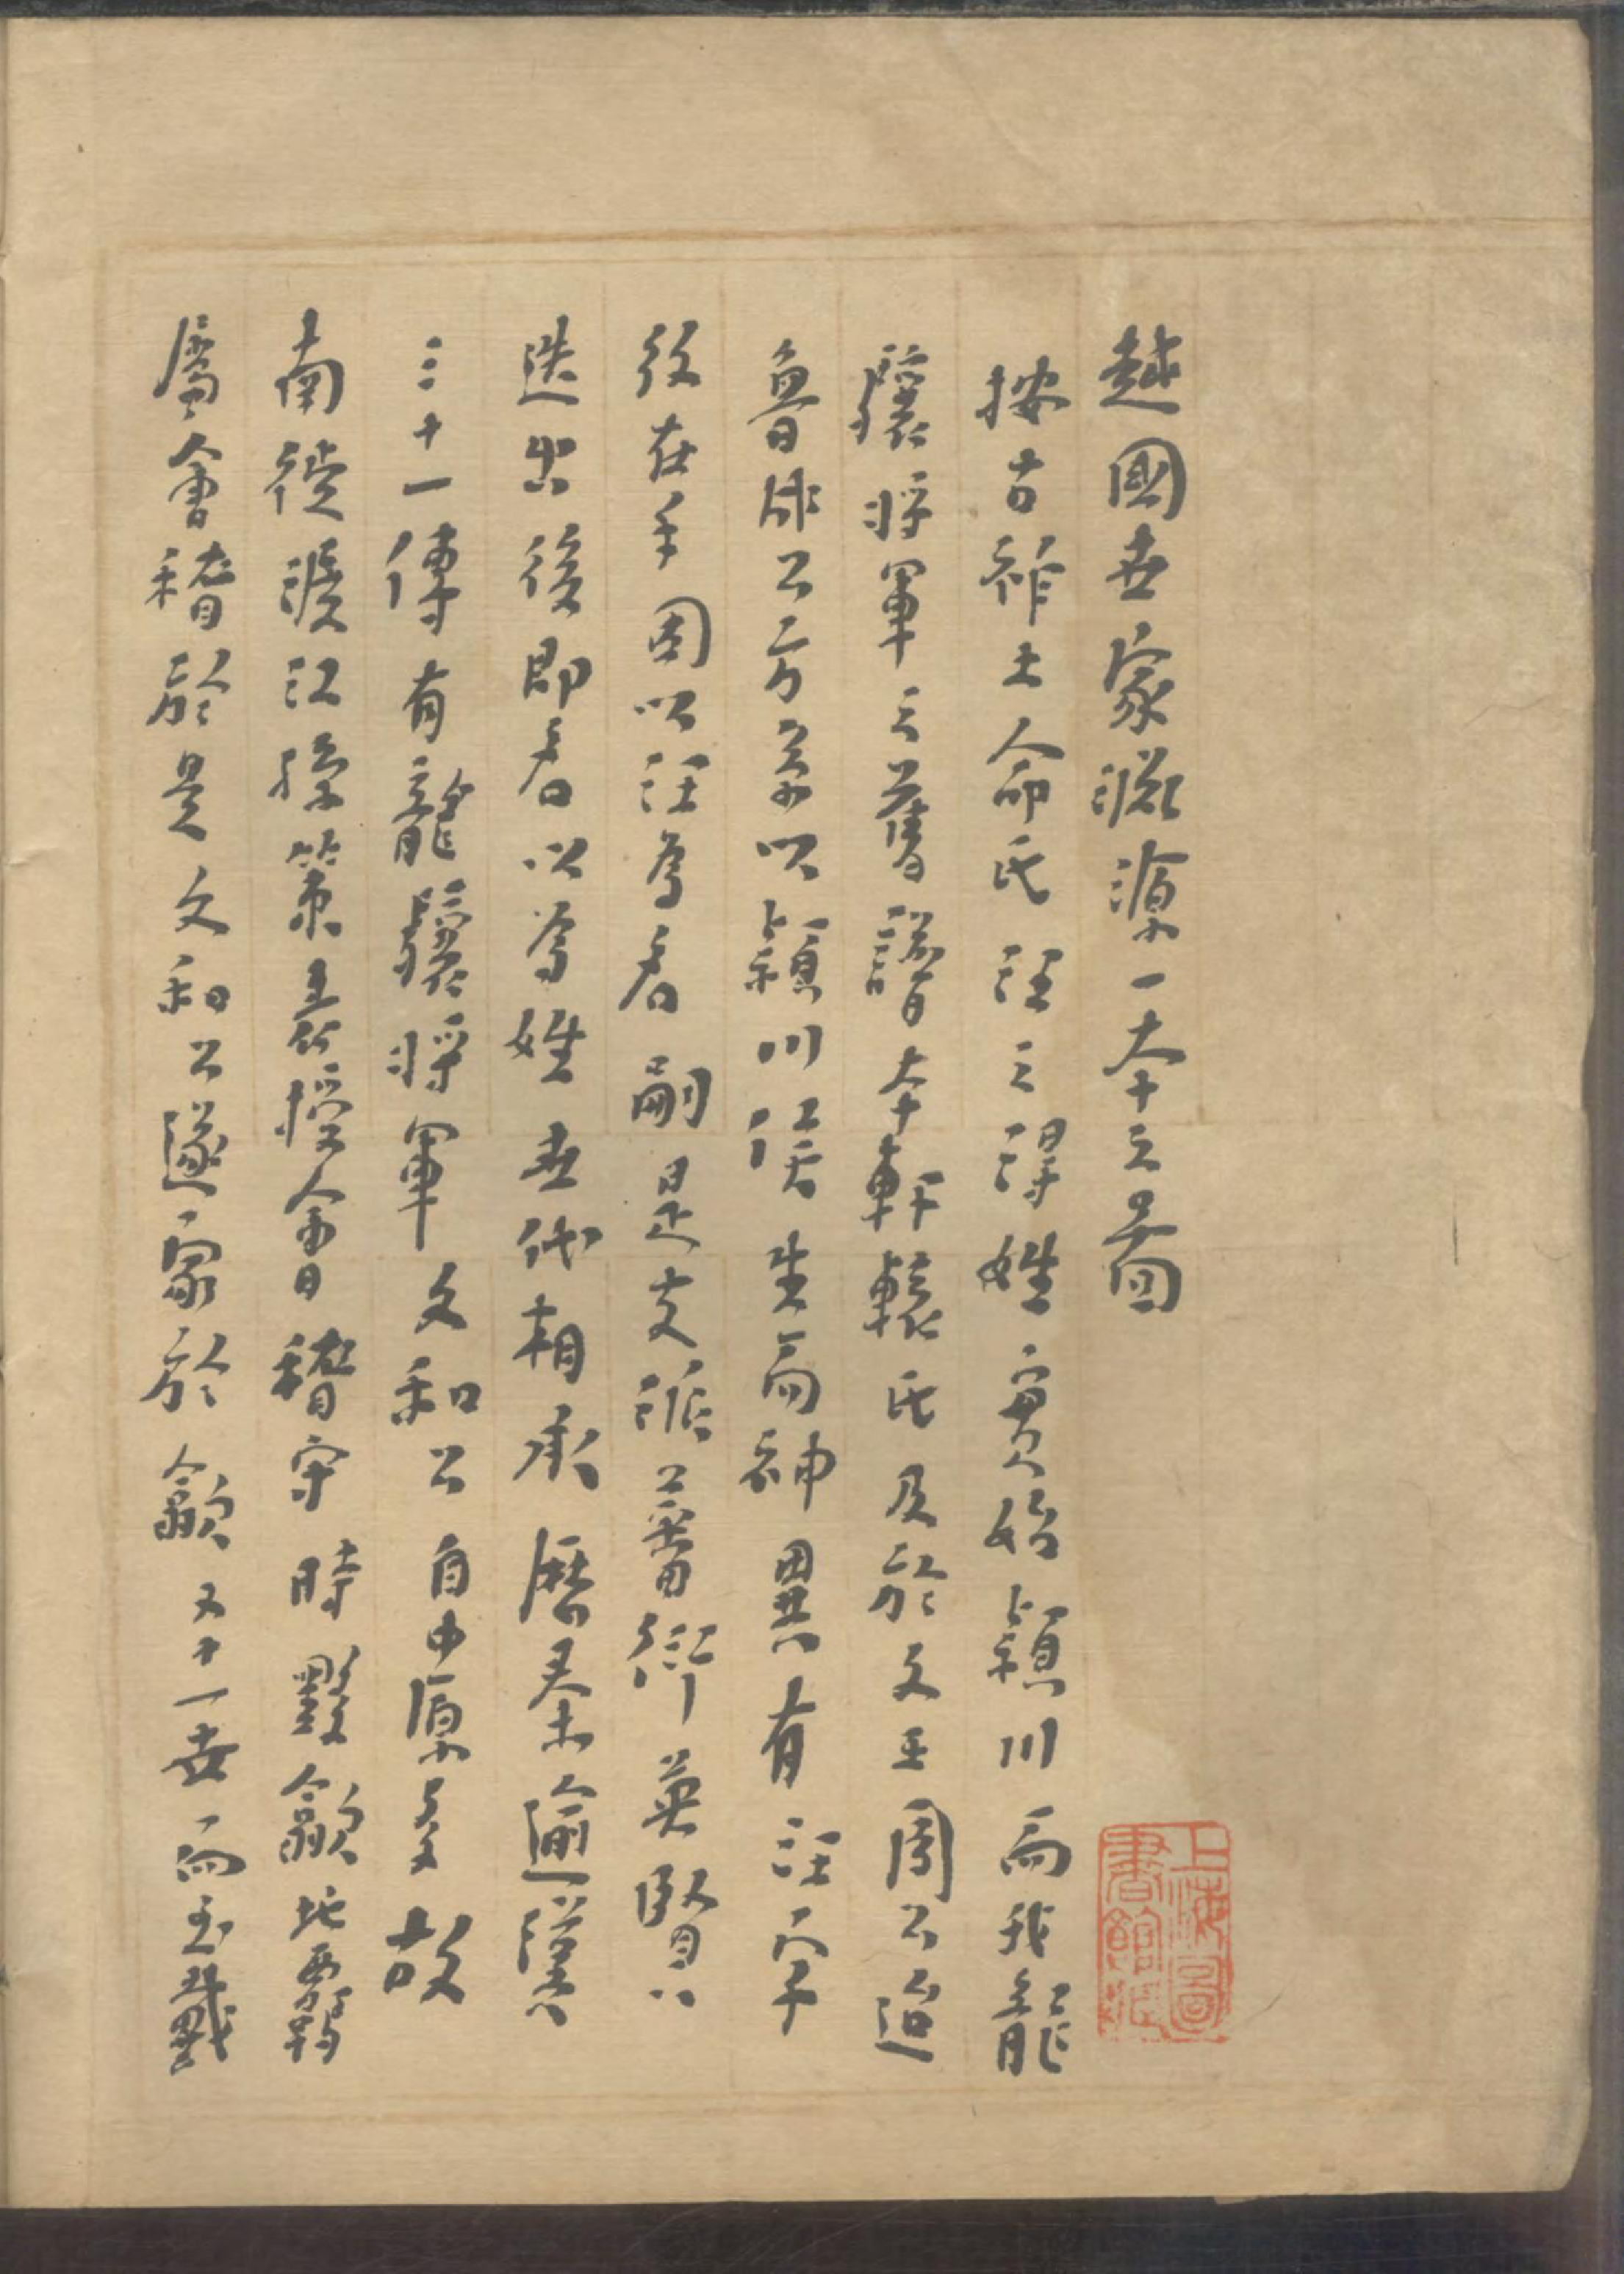 越國世家派源一本之圖
按古祚土命氏汪之得姓實始潁川而我龍
驤將軍之舊譜本軒轅氏及於文王周公迨
魯成公之方系以潁川侯生而神異有汪字
紋在手因以汪為名嗣是支派蕃衍英賢
迭出後即名以為姓世代相承歷秦逾漢
三十一傳有龍驤將軍文和公自中原多故
南徙渡江孫策表授會稽守時黟歙地
屬會稽於是文和公遂家於歙又十一世而至戴
上海圖書館藏